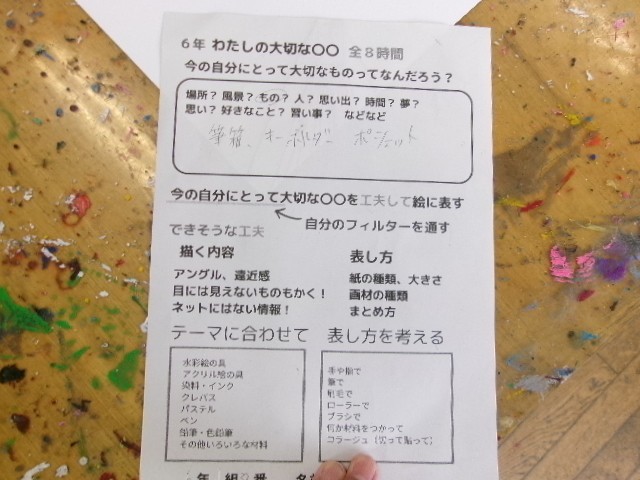 6年 わたしの大切な〇〇 全8時間
今の自分にとって大切なものってなんだろう?
場所? 風景? もの? 人? 思い出? 時間? 夢?
思い? 好きなこと? 習い事? などなど
筆箱、キーホルダー ポシェット
今の自分にとって大切な〇〇を工夫して絵に表す
自分のフィルターを通す
できそうな工夫
描く内容
アングル、遠近感
目には見えないものもかく!
ネットにはない情報!
表し方
紙の種類、大きさ
画材の種類
まとめ方
テーマに合わせて 表し方を考える
水彩絵の具
アクリル絵の具
染料・インク
クレパス
パステル
ペン
鉛筆・色鉛筆
その他いろいろな材料
手や指で
筆で
刷毛で
ローラーで
ブラシで
何か材料をつかって
コラージュ(切って貼って)
年 組 番